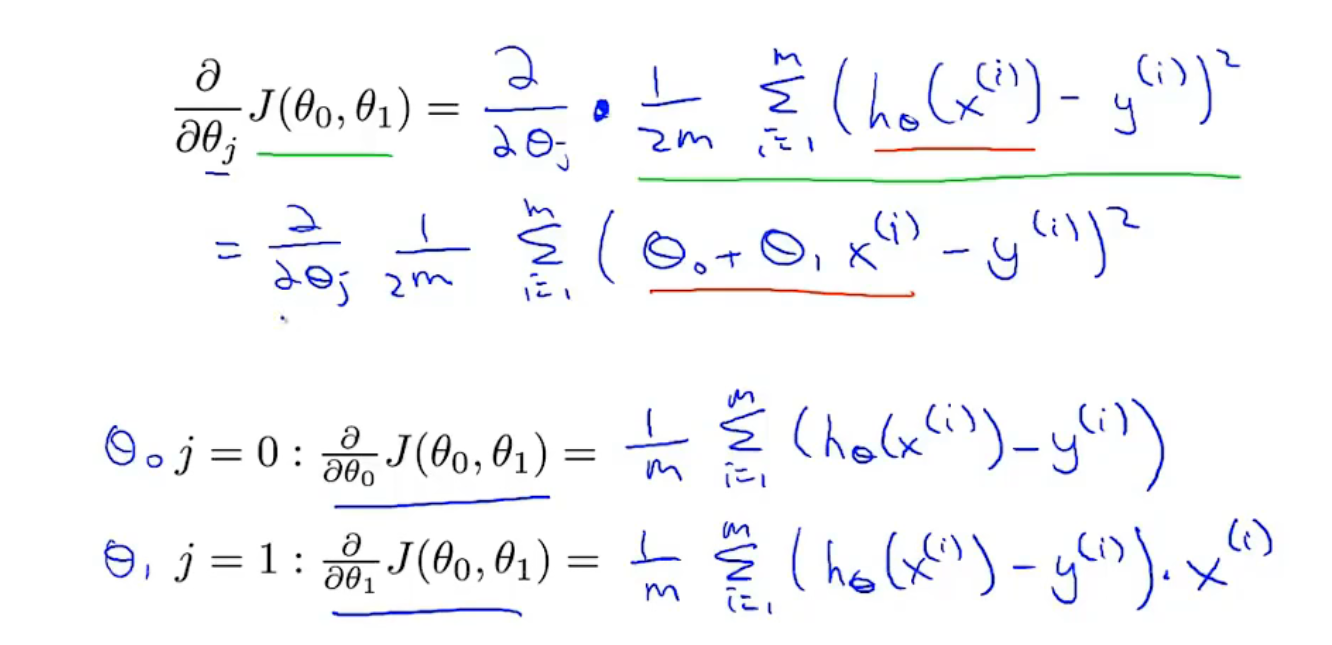 ∂/∂θ_j J(θ₀, θ₁) = ∂/∂θ_j · 1/2m ∑_{i=1}^{m} (h_θ(x^{(i)}) - y^{(i)})²
= ∂/∂θ_j 1/2m ∑_{i=1}^{m} (θ₀ + θ₁ x^{(i)} - y^{(i)})²
θ₀ j = 0 : ∂/∂θ₀ J(θ₀, θ₁) = 1/m ∑_{i=1}^{m} (h_θ(x^{(i)}) - y^{(i)})
θ₁ j = 1 : ∂/∂θ₁ J(θ₀, θ₁) = 1/m ∑_{i=1}^{m} (h_θ(x^{(i)}) - y^{(i)}) · x^{(i)}